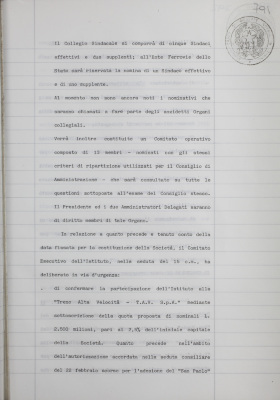 Il Collegio Sindacale si comporrà di cinque Sindaci
effettivi e due supplenti; all'Ente Ferrovie dello
Stato sarà riservata la nomina di un Sindaco effettivo
e di uno supplente.
Al momento non sono ancora noti i nominativi che
saranno chiamati a fare parte degli accidetti Organi
collegiali.
Verrà inoltre costituito un Comitato operativo
composto di 13 membri - nominati con gli stessi
criteri di ripartizione utilizzati per il Consiglio di
Amministrazione - che sarà consultato su tutte le
questioni sottoposte all'esame del Consiglio stesso.
Il Presidente ed i due Amministratori Delegati saranno
di diritto membri di tale Organo.
In relazione a quanto precede e tenuto conto della
data fissata per la costituzione della Società, il Comitato
Esecutivo dell'Istituto, nella seduta del 15 c.m., ha
deliberato in via d'urgenza:
. di confermare la partecipazione dell'Istituto alla
"Treno Alta Velocità - T.A.V. S.p.A." mediante
sottoscrizione della quota proposta di nominali L.
milioni, pari al dell'iniziale capitale
della Società. Quanto precede nell'ambito
dell'autorizzazione accordata nella seduta consiliare
del 26 febbraio scorso per l'adesione del "San Paolo"